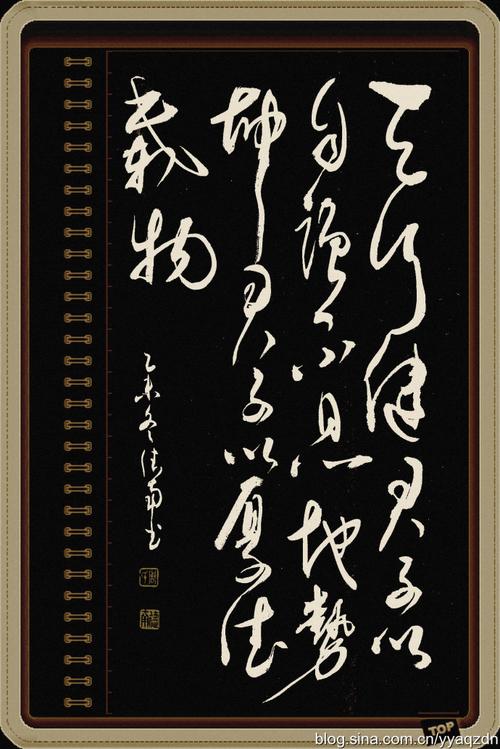 天行健君子以
自強不息地勢
坤君子以厚德
載物
乙未冬
TOP
blog.sina.com.cn/yyaqzdn